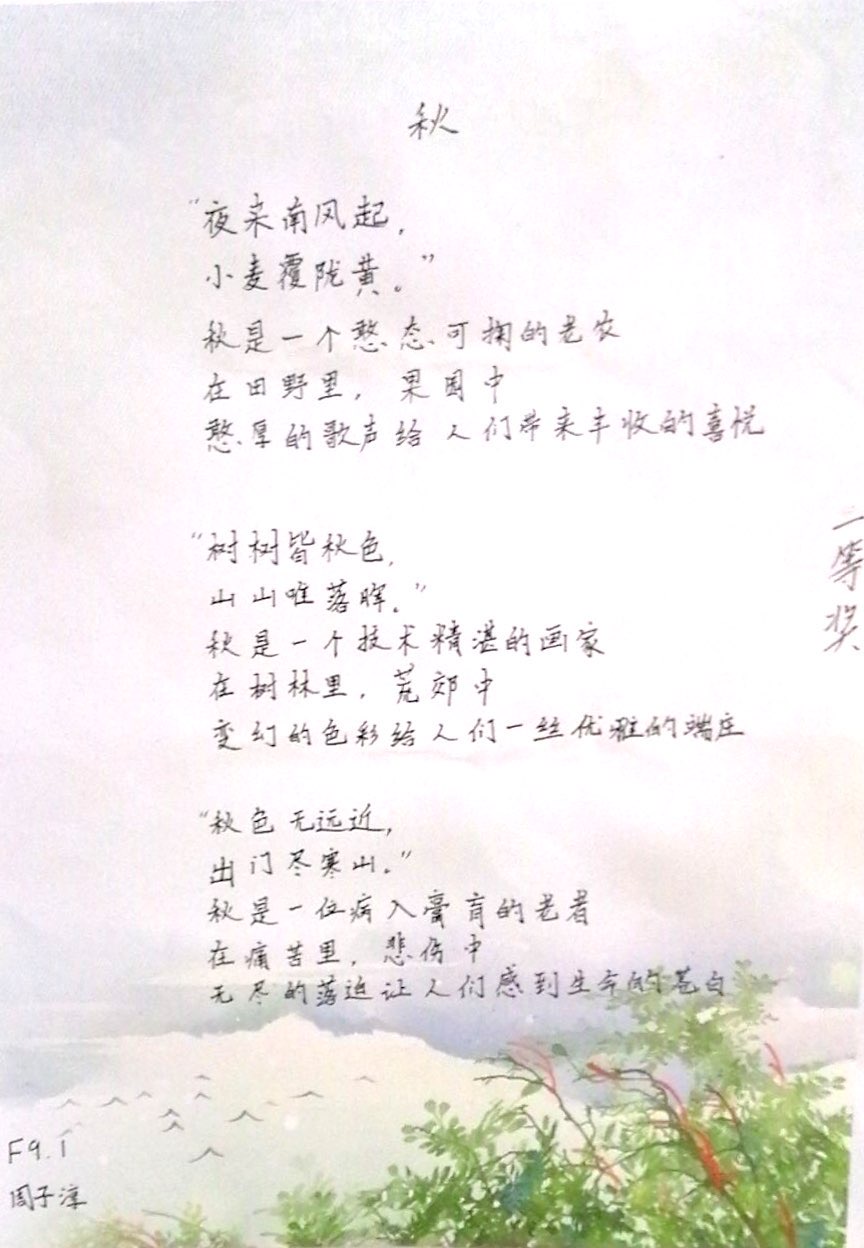 秋
“夜来南风起,
小麦覆陇黄。”
秋是一个憨态可掬的老农
在田野里,果园中
憨厚的歌声给人们带来丰收的喜悦
“树树皆秋色,
山山唯落晖。”
秋是一个技术精湛的画家
在树林里,荒郊中
变幻的色彩给人们一丝优雅的端庄
“秋色无远近,
出门尽寒山。”
秋是一位病入膏肓的老者
在痛苦里,悲伤中
无尽的落迫让人们感到生命的苍白
二等奖
F9.1
周子淳